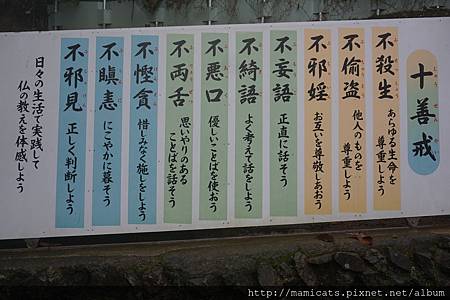 十善戒
不殺生
あらゆる生命を
尊重しよう
不偸盗
他人のものを
尊重しよう
不邪婬
お互いを尊敬しあおう
不妄語
正直に話そう
不綺語
よく考えて話をしよう
不悪口
優しいことばを使おう
不両舌
思いやりのある
ことばを話そう
不慳貪
惜しみなく施しをしよう
不瞋恚
にこやかに暮そう
不邪見
正しく判断しよう
日々の生活で実践して
仏の教えを体感しよう
http://mamicats.pixnet.net/album